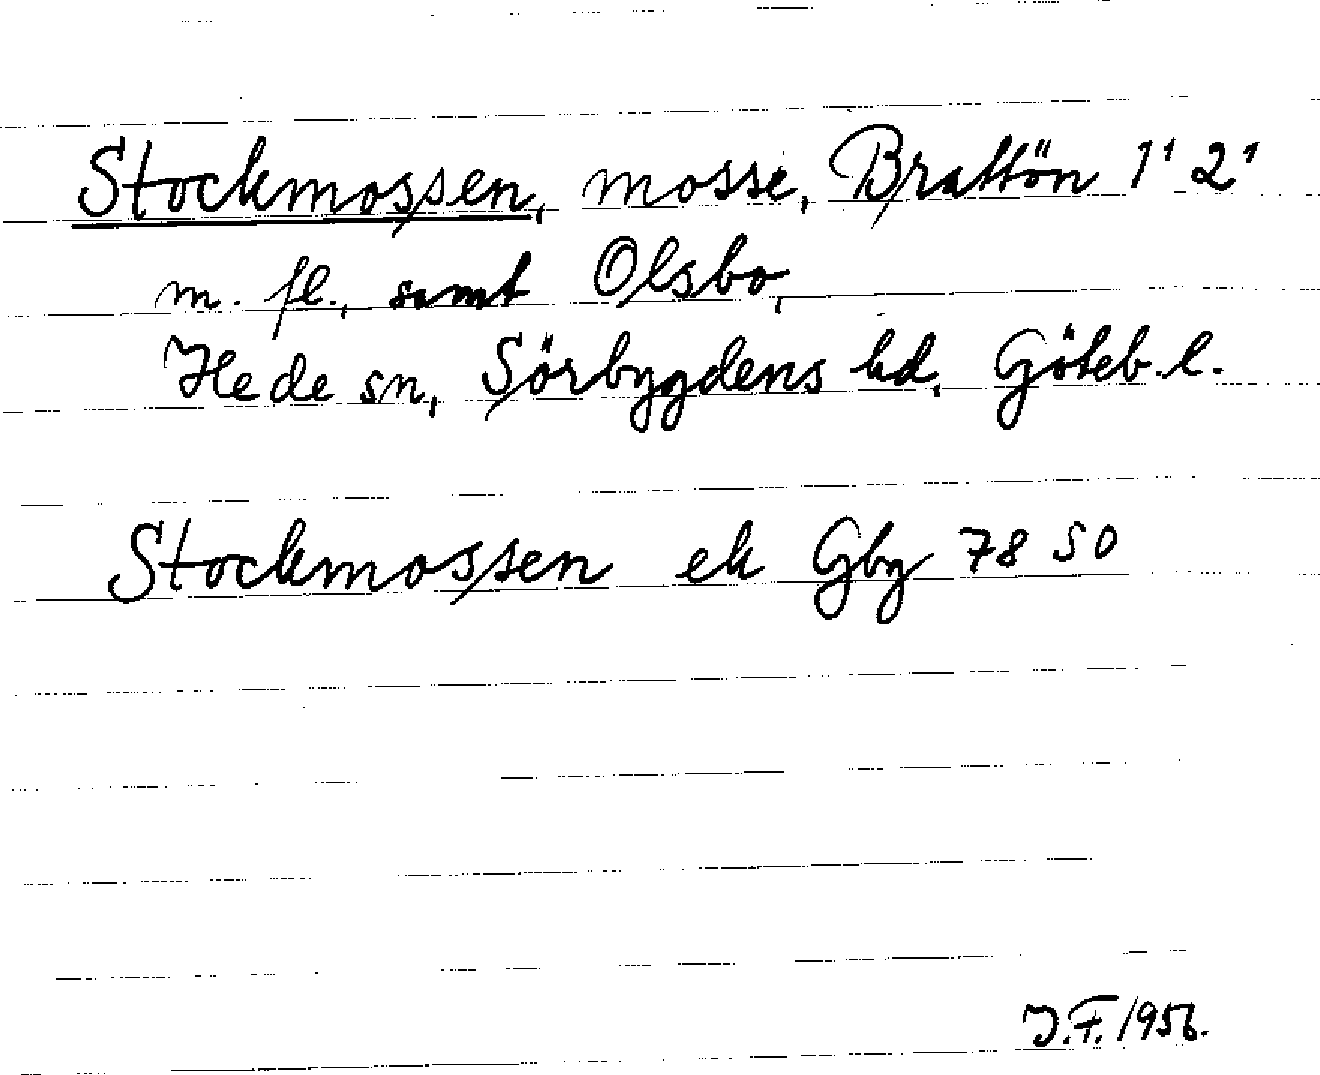 Stockmossen, mosse, Brattön 1¹ 2¹
m. fl., samt Olsbo,
Hede sn, Sörbygdens hd, Göteb. l.
Stockmossen ek Gby 78 SO
J.F. 1956.